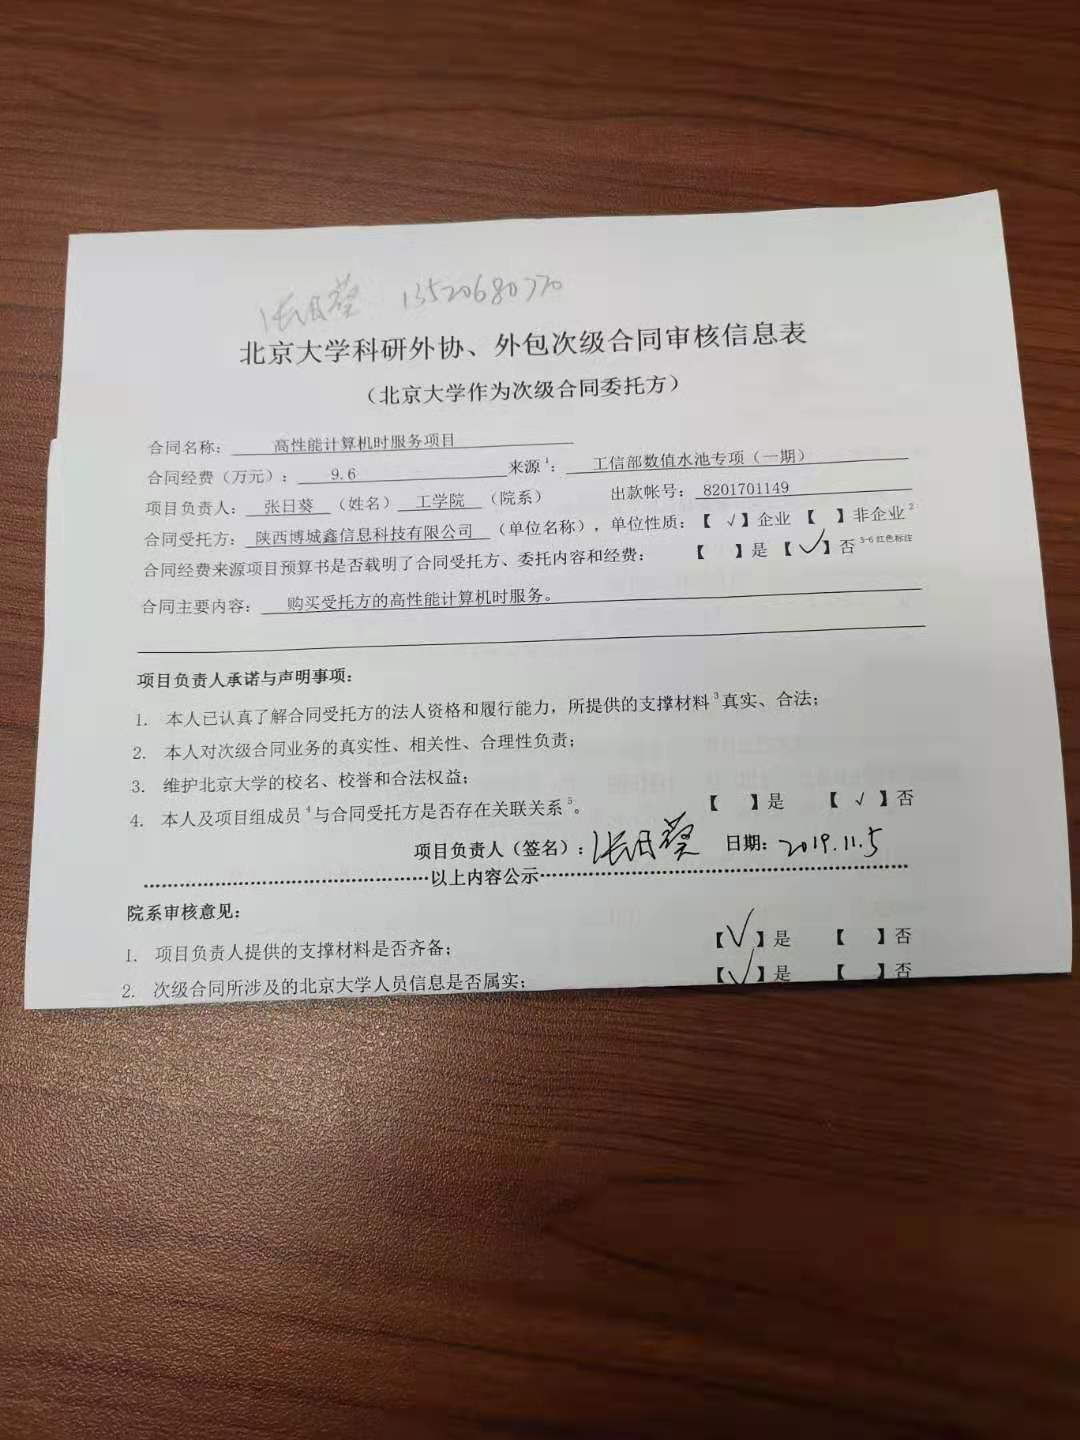 张日葵 13520680770
北京大学科研外协、外包次级合同审核信息表
（北京大学作为次级合同委托方）
合同名称： 高性能计算机时服务项目
合同经费（万元）： 9.6 来源1： 工信部数值水池专项（一期）
项目负责人： 张日葵 （姓名） 工学院 （院系） 出款帐号： 8201701149
合同受托方： 陕西博城鑫信息科技有限公司 （单位名称），单位性质：【 √ 】企业 【 】非企业2
合同经费来源项目预算书是否载明了合同受托方、委托内容和经费： 【 】是 【 √ 】否 3-6 红色标注
合同主要内容： 购买受托方的高性能计算机时服务。
项目负责人承诺与声明事项：
1. 本人已认真了解合同受托方的法人资格和履行能力，所提供的支撑材料3真实、合法；
2. 本人对次级合同业务的真实性、相关性、合理性负责；
3. 维护北京大学的校名、校誉和合法权益；
4. 本人及项目组成员4与合同受托方是否存在关联关系5。 【 】是 【 √ 】否
项目负责人（签名）：张日葵 日期：2019.11.5
以上内容公示
院系审核意见：
1. 项目负责人提供的支撑材料是否齐备； 【√】是 【 】否
2. 次级合同所涉及的北京大学人员信息是否属实； 【√】是 【 】否